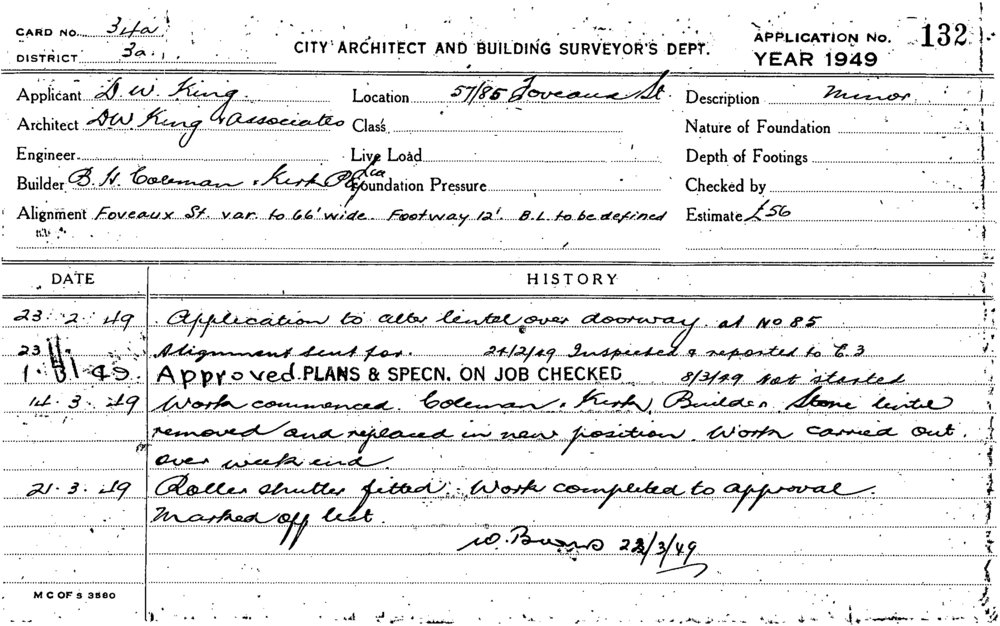 CARD NO. 34a
DISTRICT 3a
CITY ARCHITECT AND BUILDING SURVEYOR'S DEPT.
APPLICATION NO. 132
YEAR 1949
Applicant D. W. King. Location 57/85 Foveaux St. Description Minor.
Architect D W King & Associates Class Nature of Foundation
Engineer Live Load Depth of Footings
Builder B. H. Coleman & Kirk Pty Ltd Foundation Pressure Checked by
Alignment Foveaux St. var. to 66' wide. Footway 12'. B.L. to be defined Estimate £56
DATE HISTORY
23 . 2 . 49 Application to alter lintel over doorway at No 85
23 Alignment sent for. 24/2/49 Inspected & reported to C.3
1. 49. Approved. PLANS & SPECN. ON JOB CHECKED 8/3/49 Not started
14 . 3 . 49 Work commenced. Coleman & Kirk, Builder. Stone lintel
removed and replaced in new position. Work carried out
over week end.
21 . 3 . 49 Roller shutter fitted. Work completed to approval.
Marked off list.
W. Burns 22/3/49
M C OF S 3560